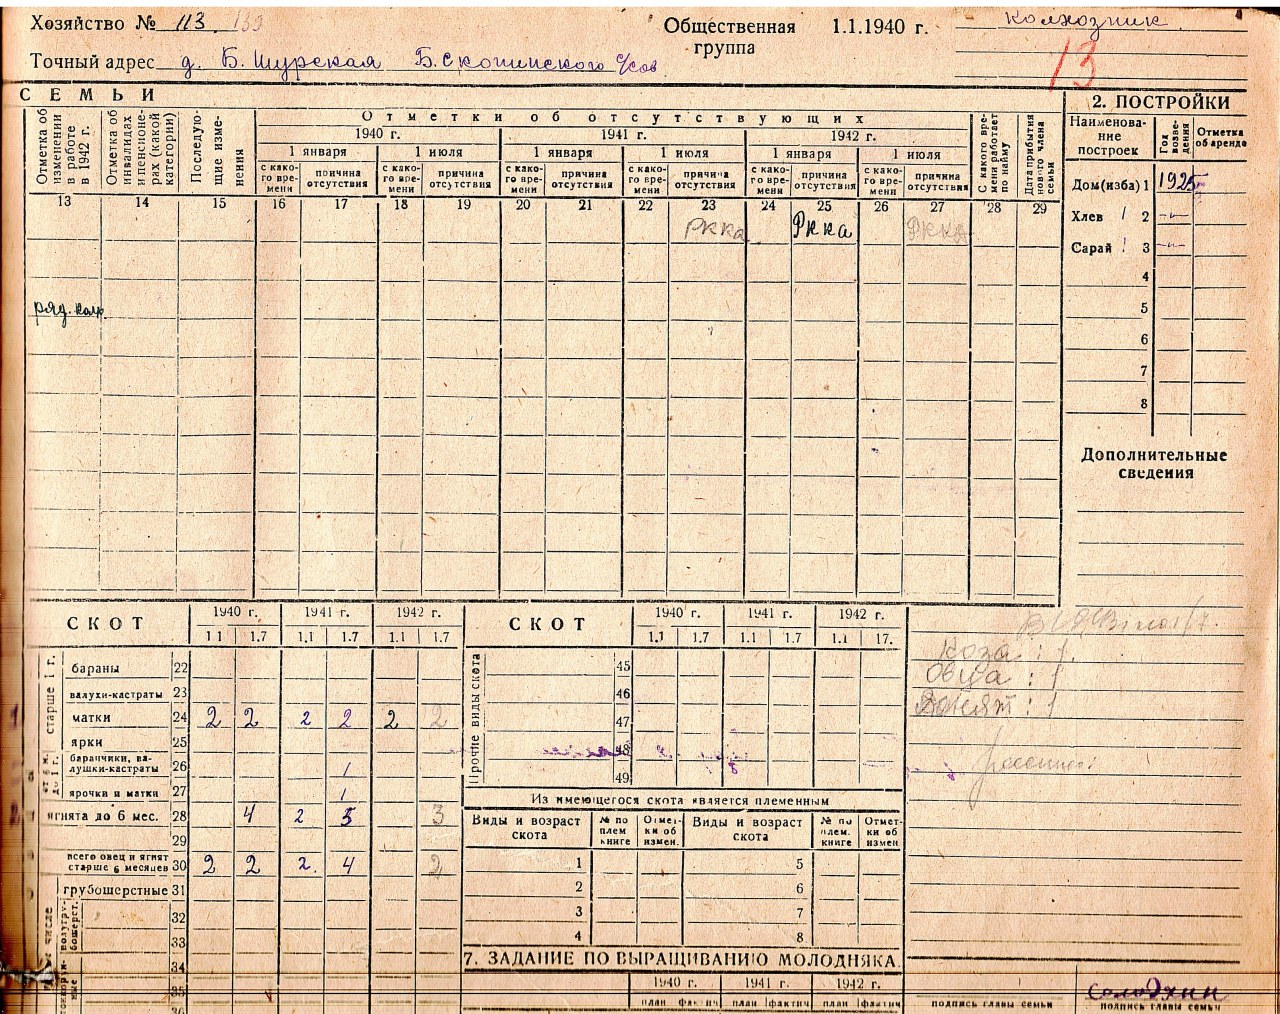 Хозяйство № 113. 139
Общественная группа 1.1.1940 г. колхозник
Точный адрес д. Б. Шурская Б. Скопинского с/сов
13
СЕМЬИ
Отметка об изменении в работе в 1942 г.
Отметка об инвалидах и пенсионерах (какой категории)
Последующие изменения
Отметки об отсутствующих
1940 г. 1941 г. 1942 г.
1 января 1 июля 1 января 1 июля 1 января 1 июля
с какого времени причина отсутствия с какого времени причина отсутствия с какого времени причина отсутствия с какого времени причина отсутствия с какого времени причина отсутствия с какого времени причина отсутствия
С какого времени работает по найму
Дата прибытия нового члена семьи
13 14 15 16 17 18 19 20 21 22 23 24 25 26 27 28 29
РККА РККА РККА
ряд. колх
2. ПОСТРОЙКИ
Наименование построек Год возведения Отметка об аренде
Дом (изба) 1 1925
Хлев 1 2 -"-
Сарай 1 3 -"-
4
5
6
7
8
Дополнительные сведения
СКОТ
1940 г. 1941 г. 1942 г.
1.1 1.7 1.1 1.7 1.1 1.7
старше 1 г.
бараны 22
валухи-кастраты 23
матки 24 2 2 2 2 2 2
ярки 25
от 6 м. до 1 г.
баранчики, валушки-кастраты 26 1
ярочки и матки 27 1
ягнята до 6 мес. 28 4 2 5 3
29
всего овец и ягнят старше 6 месяцев 30 2 2 2. 4 2
грубошерстные 31
32
33
34
35
36
СКОТ
1940 г. 1941 г. 1942 г.
1.1 1.7 1.1 1.7 1.1 17.
Прочие виды скота
45
46
47
48
49
Из имеющегося скота является племенным
Виды и возраст скота № по плем книге Отметки об измен. Виды и возраст скота № по плем. книге Отметки об измен
1 5
2 6
3 7
4 8
7. ЗАДАНИЕ ПО ВЫРАЩИВАНИЮ МОЛОДНЯКА.
1940 г. 1941 г. 1942 г.
план фактич план фактич план фактич
Коза: 1.
Овца: 1
: 1
подпись главы семьи
Солодянин
подпись главы семьи